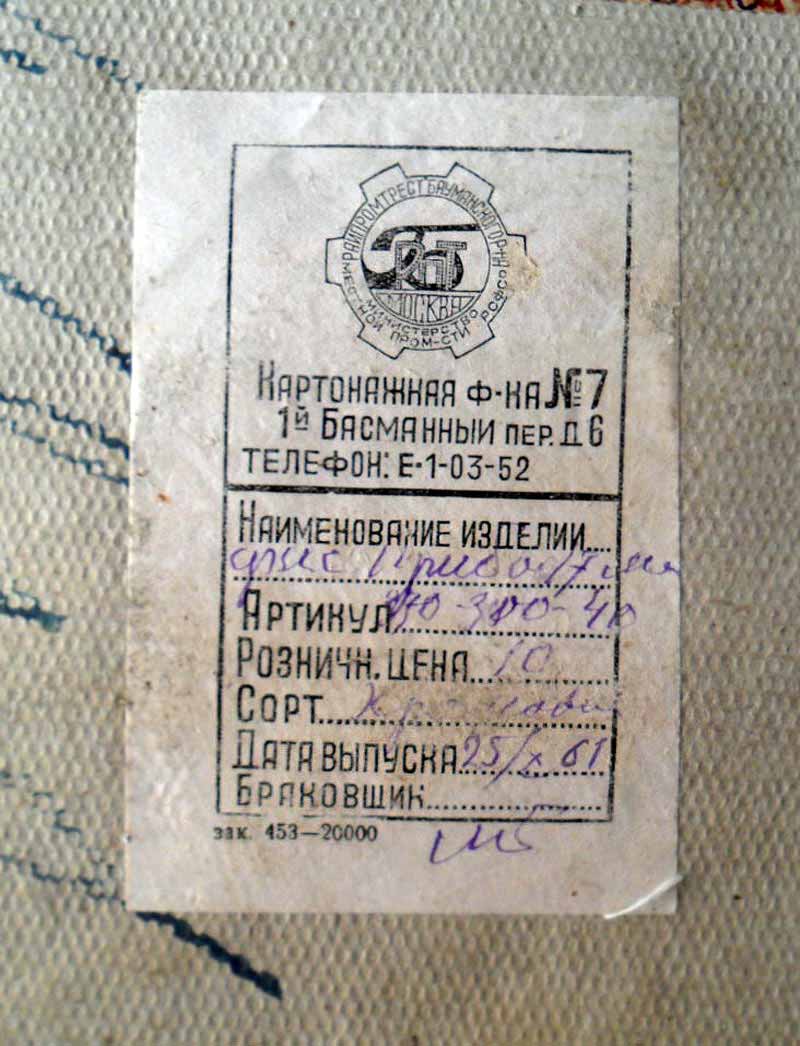 РАЙПРОМТРЕСТ БАУМАНСКОГО Р-НА
РПТ
МОСКВА
МИНИСТЕРСТВО
МЕСТНОЙ ПРОМ-СТИ РСФСР
КАРТОНАЖНАЯ Ф-КА №7
1й БАСМАННЫЙ ПЕР. Д 6
ТЕЛЕФОН: Е-1-03-52
НАИМЕНОВАНИЕ ИЗДЕЛИИ....
АРТИКУЛ
РОЗНИЧН. ЦЕНА 10
СОРТ
ДАТА ВЫПУСКА 25/X 61
БРАКОВЩИК
зак. 453—20000